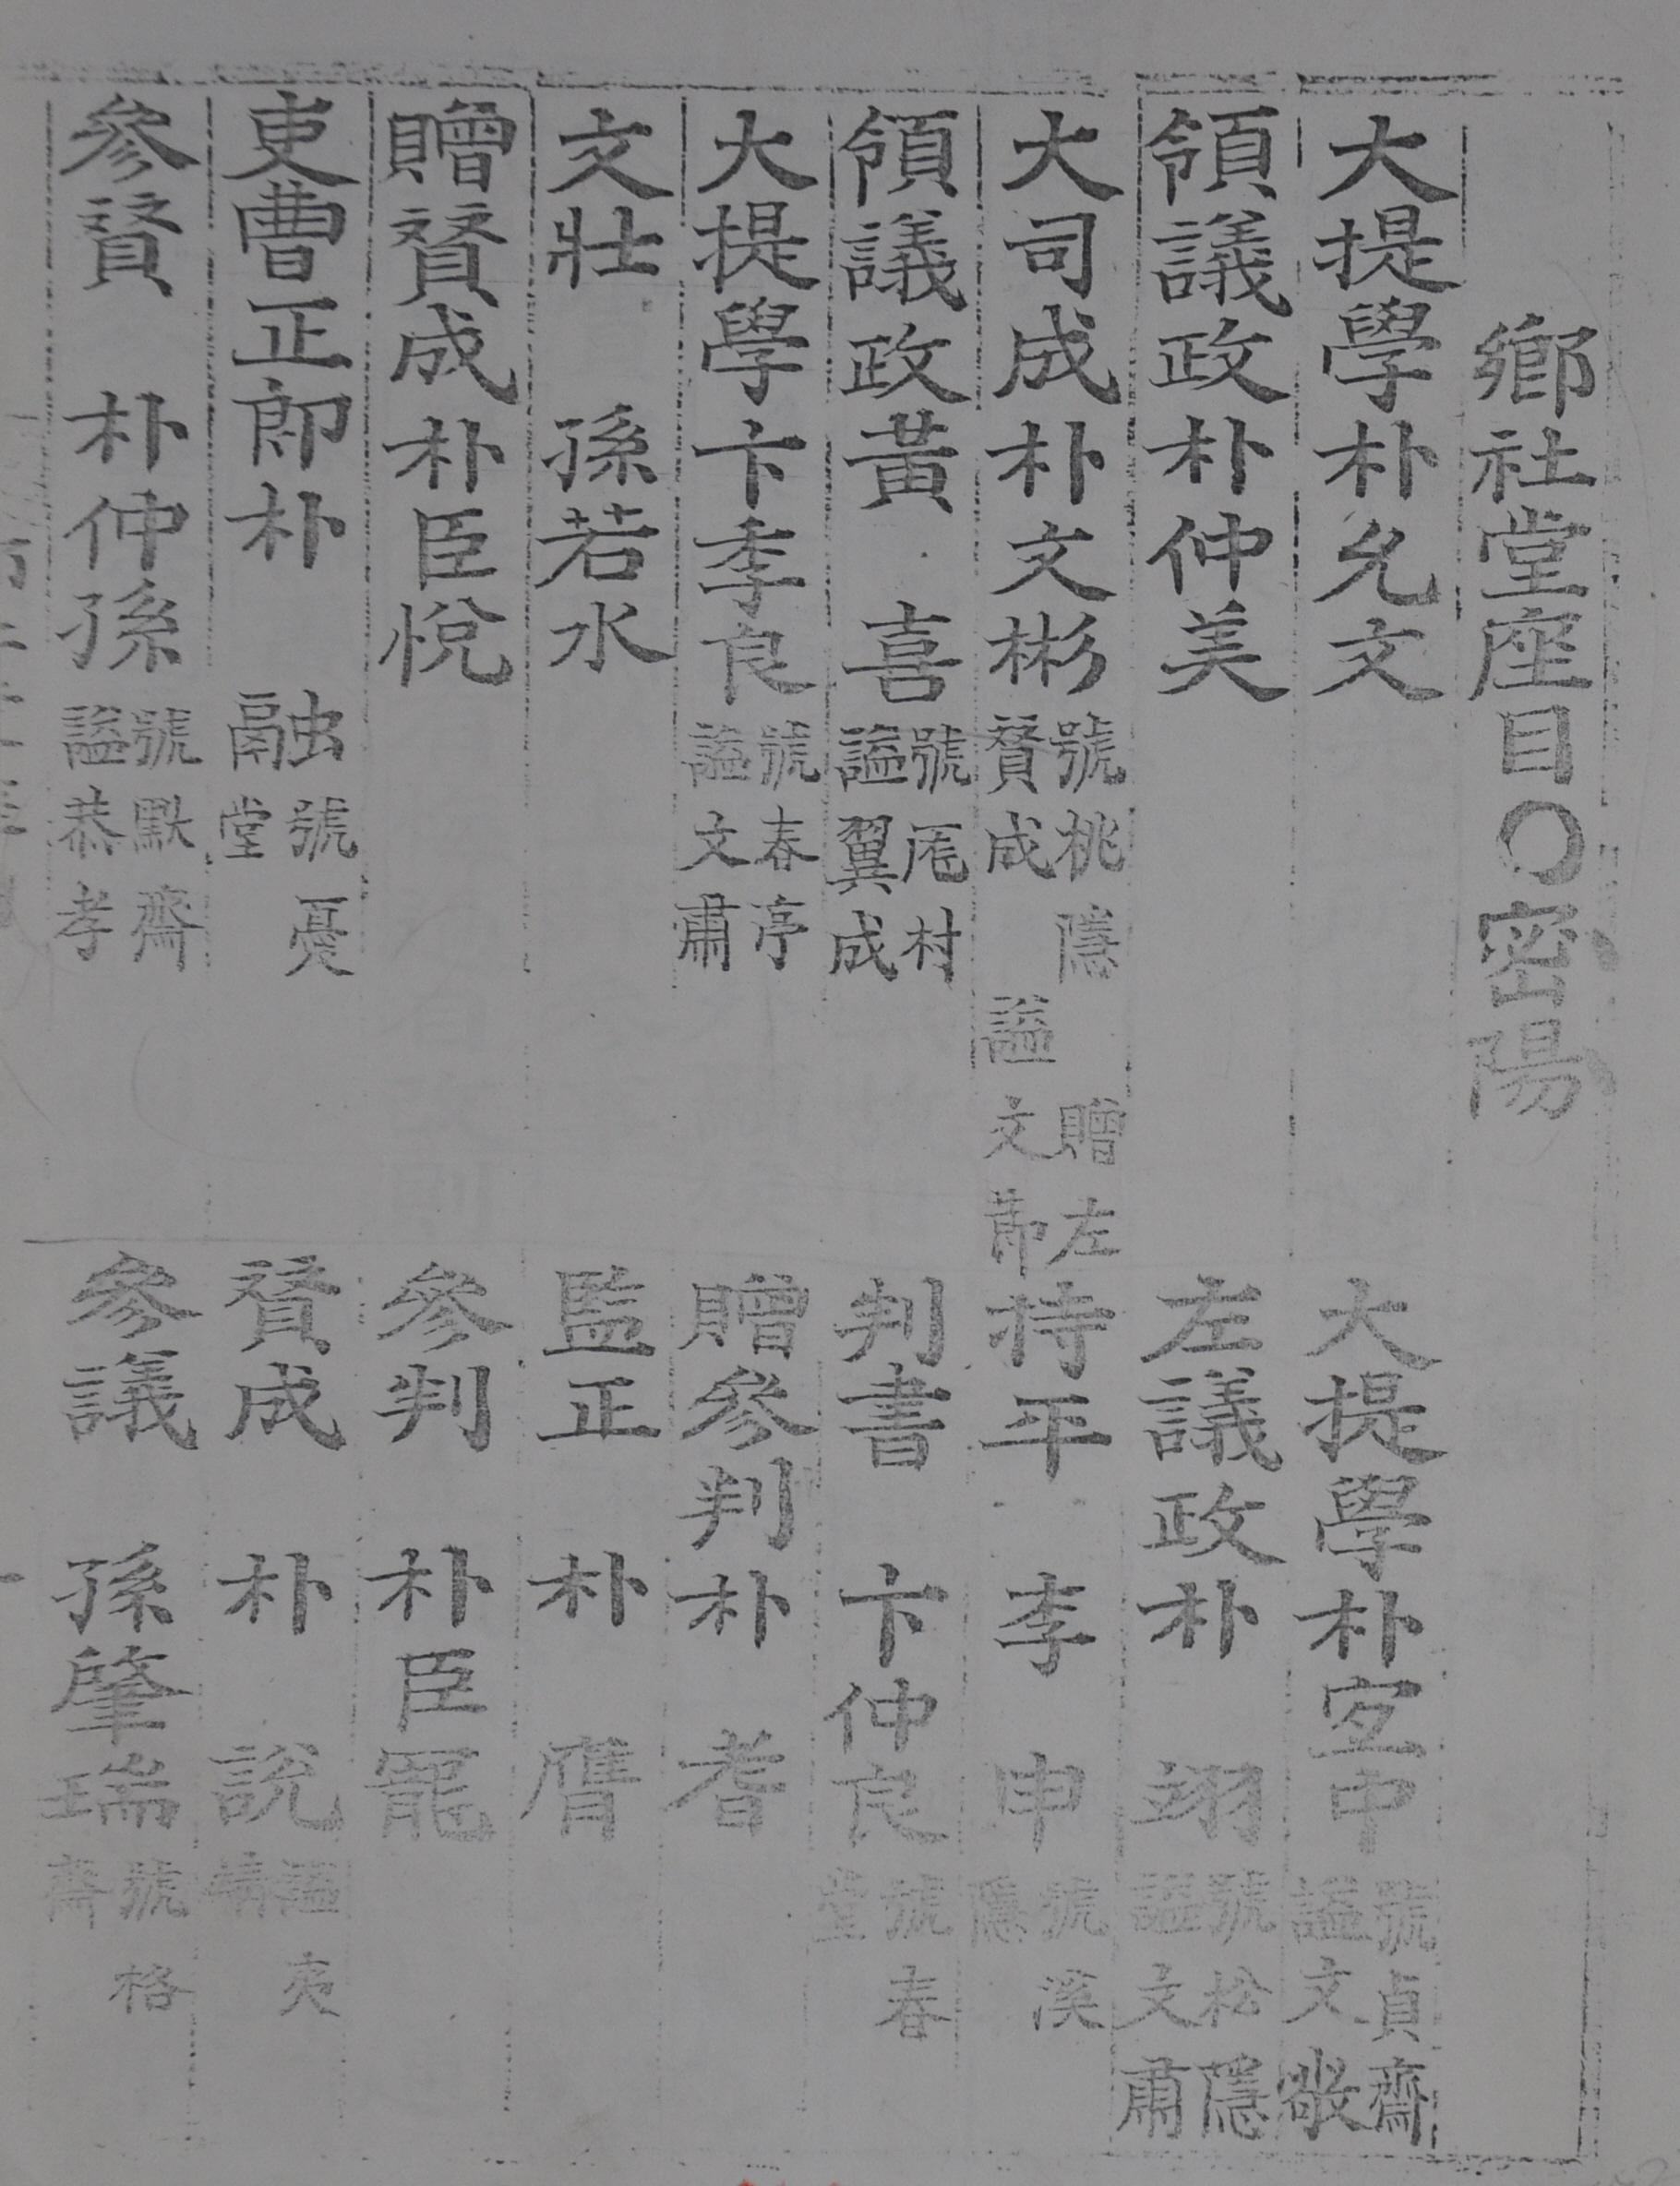 鄉社堂座目○密陽
大提學朴允文
大提學朴宜中 號貞齋 諡文敬
領議政朴仲美
左議政朴 翊 號松隱 諡文肅
大司成朴文彬 號桃隱 贈左賛成 諡文節
持平 李 申 號溪隱
領議政黃 喜 號厖村 諡翼成
判書 卞仲良 號春堂
大提學卞季良 號春亭 諡文肅
贈參判朴 耆
文壯 孫若水
監正 朴 膺
贈賛成朴臣悅
參判 朴臣
吏曹正郎朴 融 號憂堂
賛成 朴 說 諡夷靖
參賛 朴仲孫 號默齋 諡恭孝
參議 孫肇瑞 號格齋